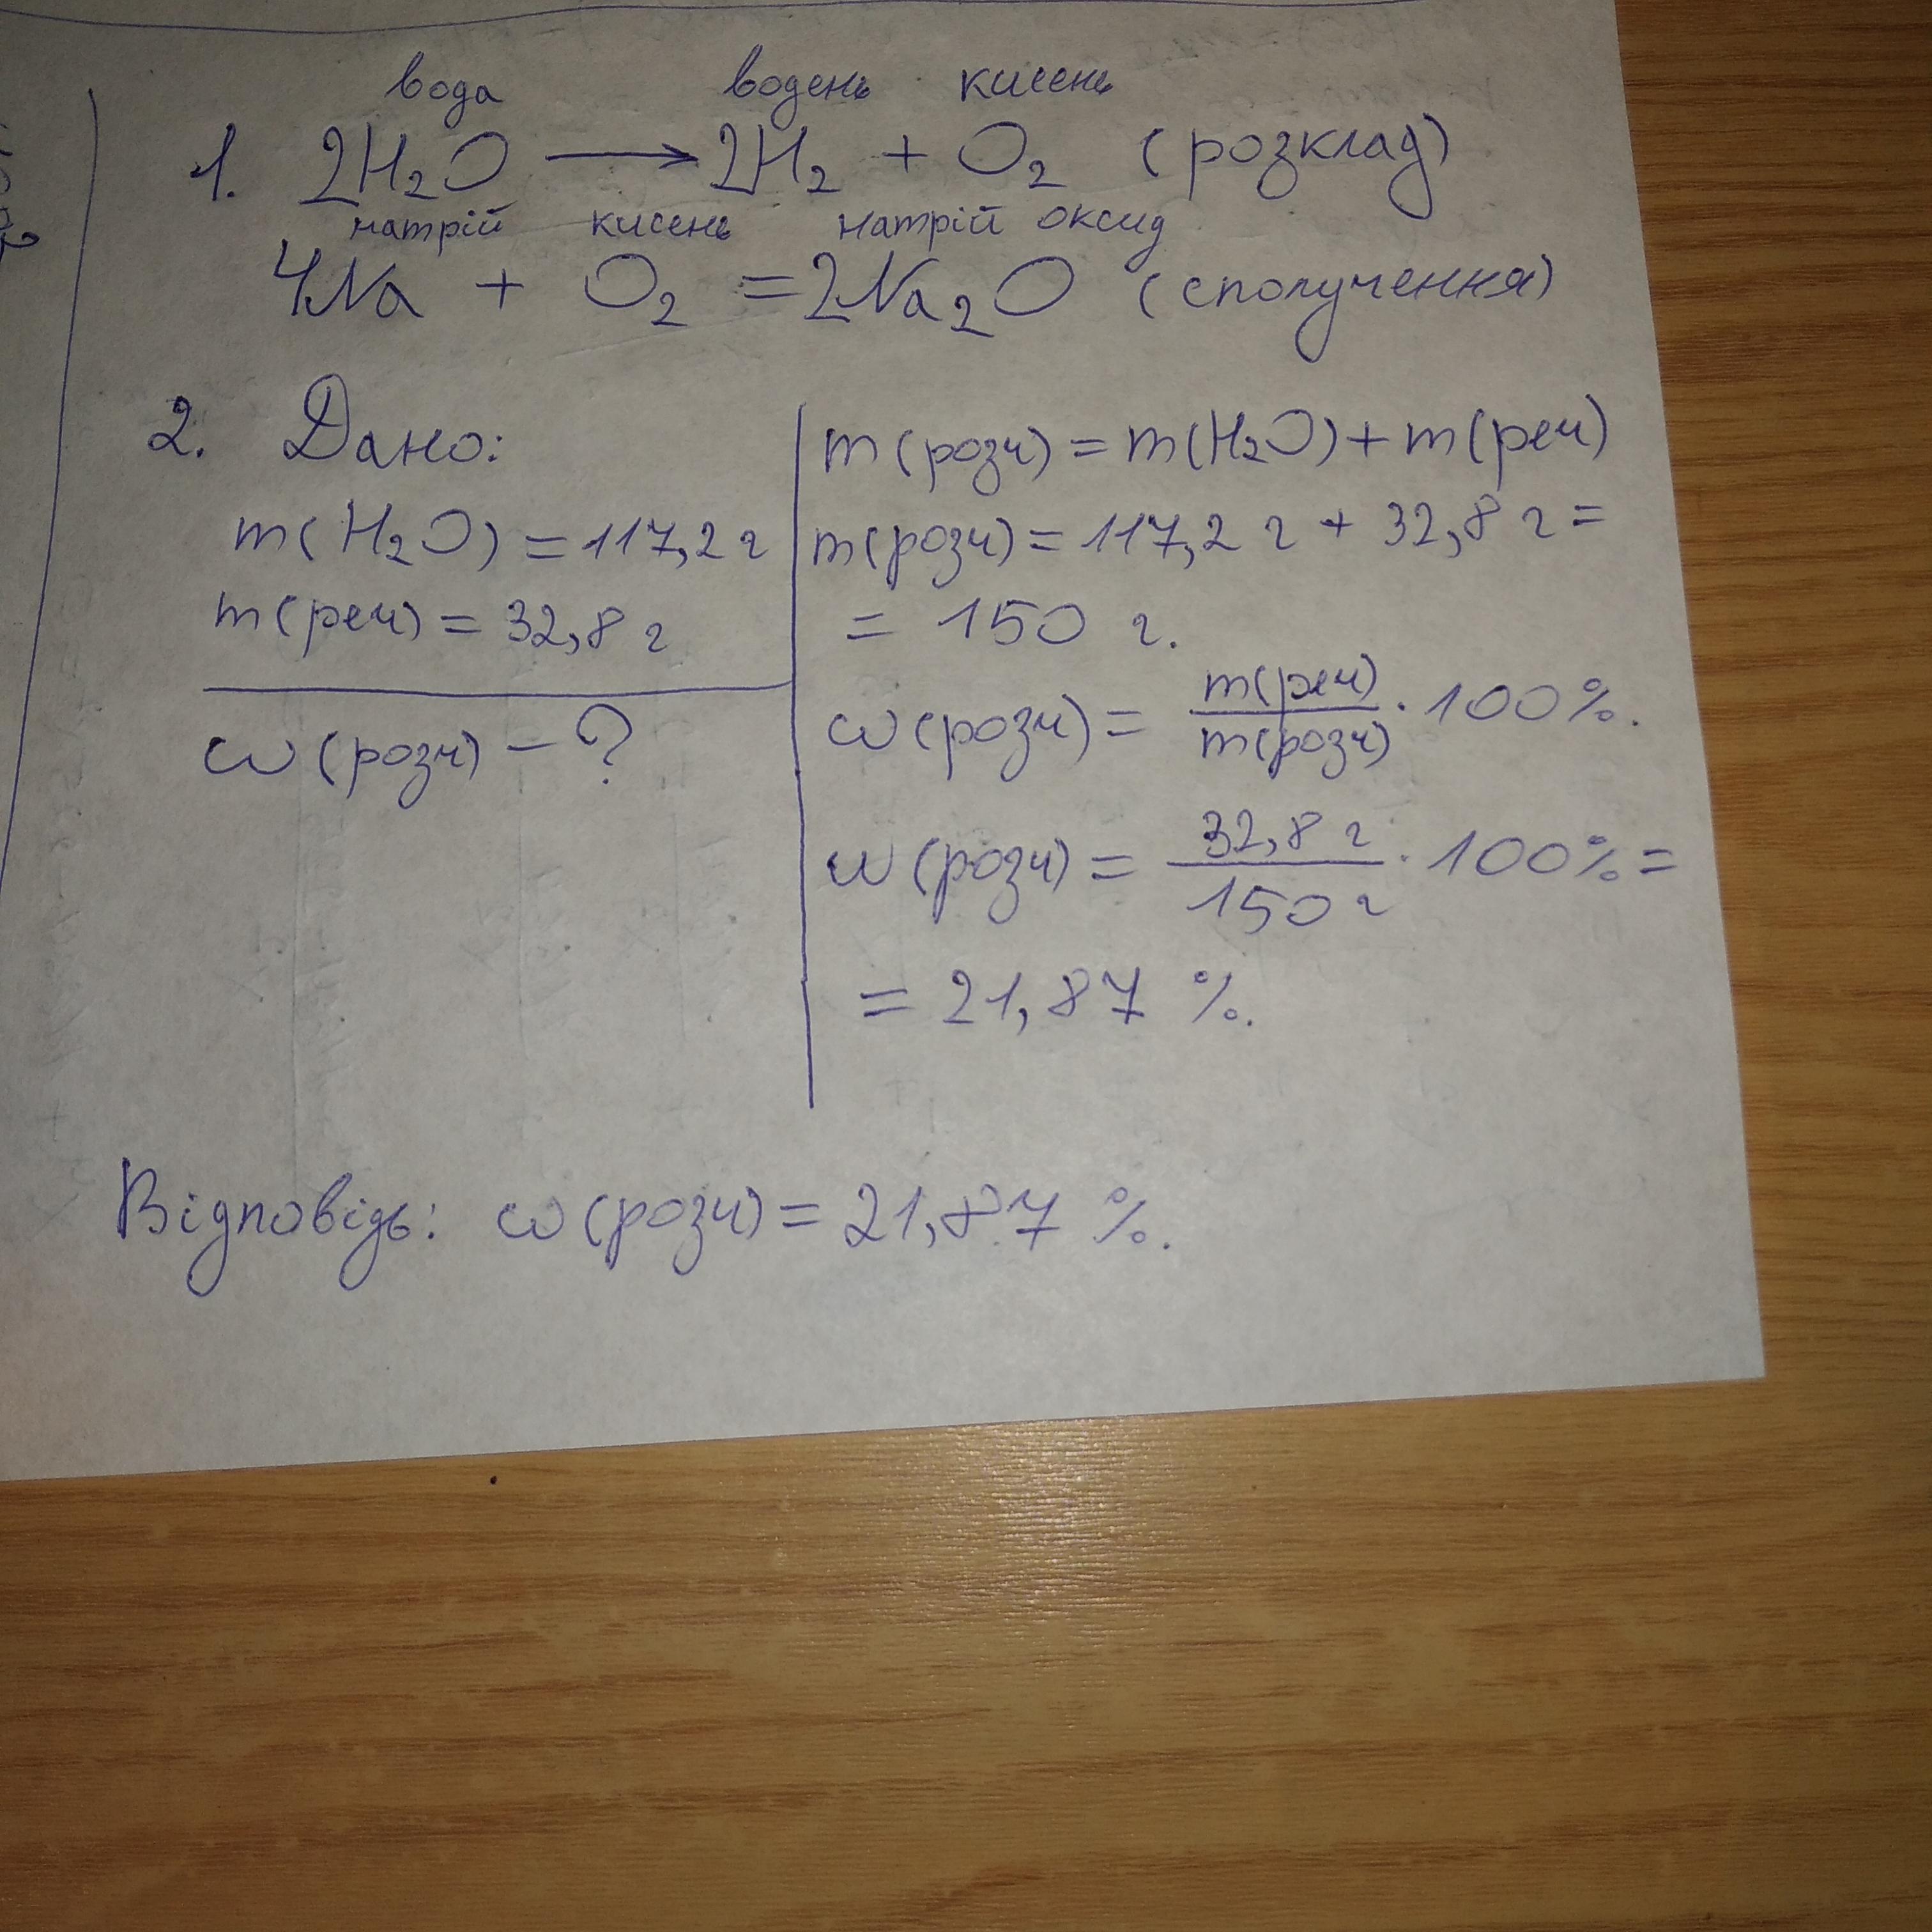 вода водень кисень
1. 2H₂O → 2H₂ + O₂ (розклад)
натрій кисень натрій оксид
4Na + O₂ = 2Na₂O (сполучення)
2. Дано:
m(H₂O) = 117,2 г
m(реч) = 32,8 г
ω(розч) – ?
m(розч) = m(H₂O) + m(реч)
m(розч) = 117,2 г + 32,8 г =
= 150 г.
ω(розч) = m(реч)/m(розч) · 100%.
ω(розч) = 32,8 г/150 г · 100% =
= 21,87 %.
Відповідь: ω(розч) = 21,87 %.